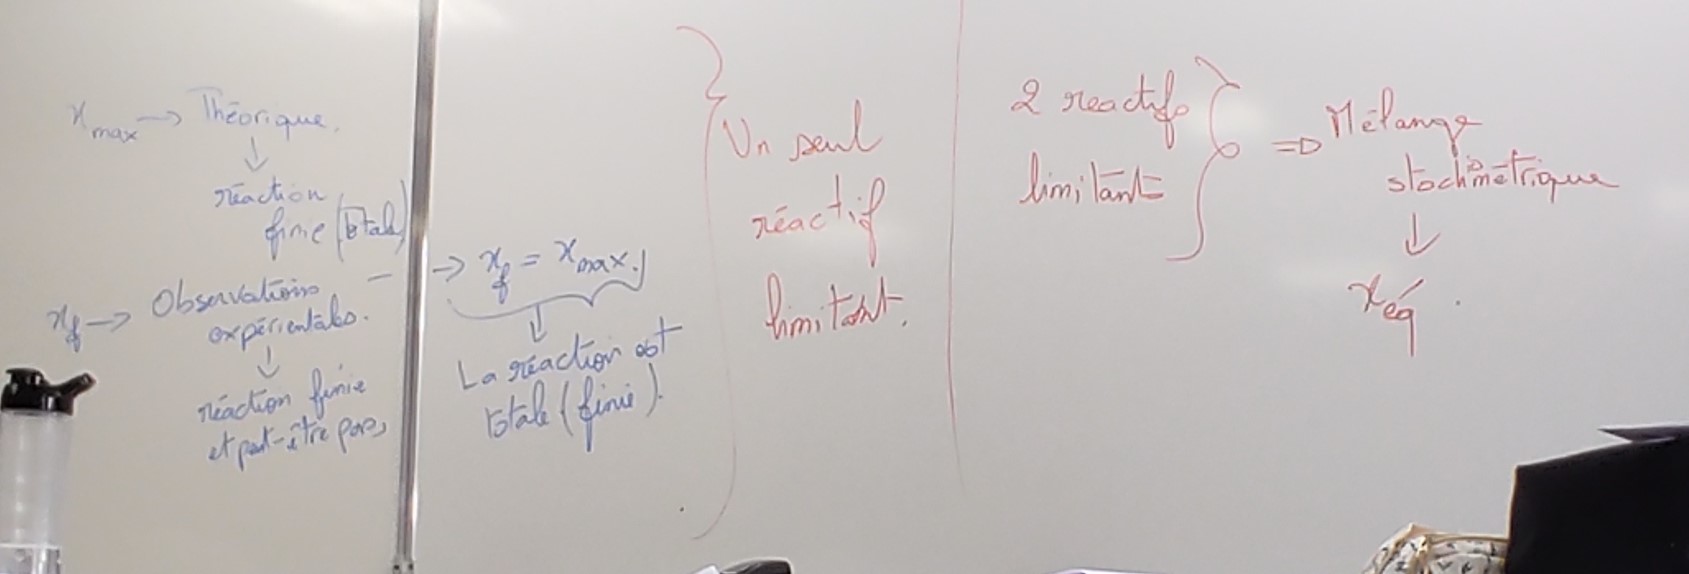 xmax → Théorique.
↓
réaction
finie (totale)
xf → Observations
expérientales.
↓
réaction finie
et peut-être pas,
→ xf = xmax.
↓
La réaction est
totale (finie).
Un seul
réactif
limitant.
2 reactifs
limitant
⇒ Mélange
stochiométrique
↓
xéq.